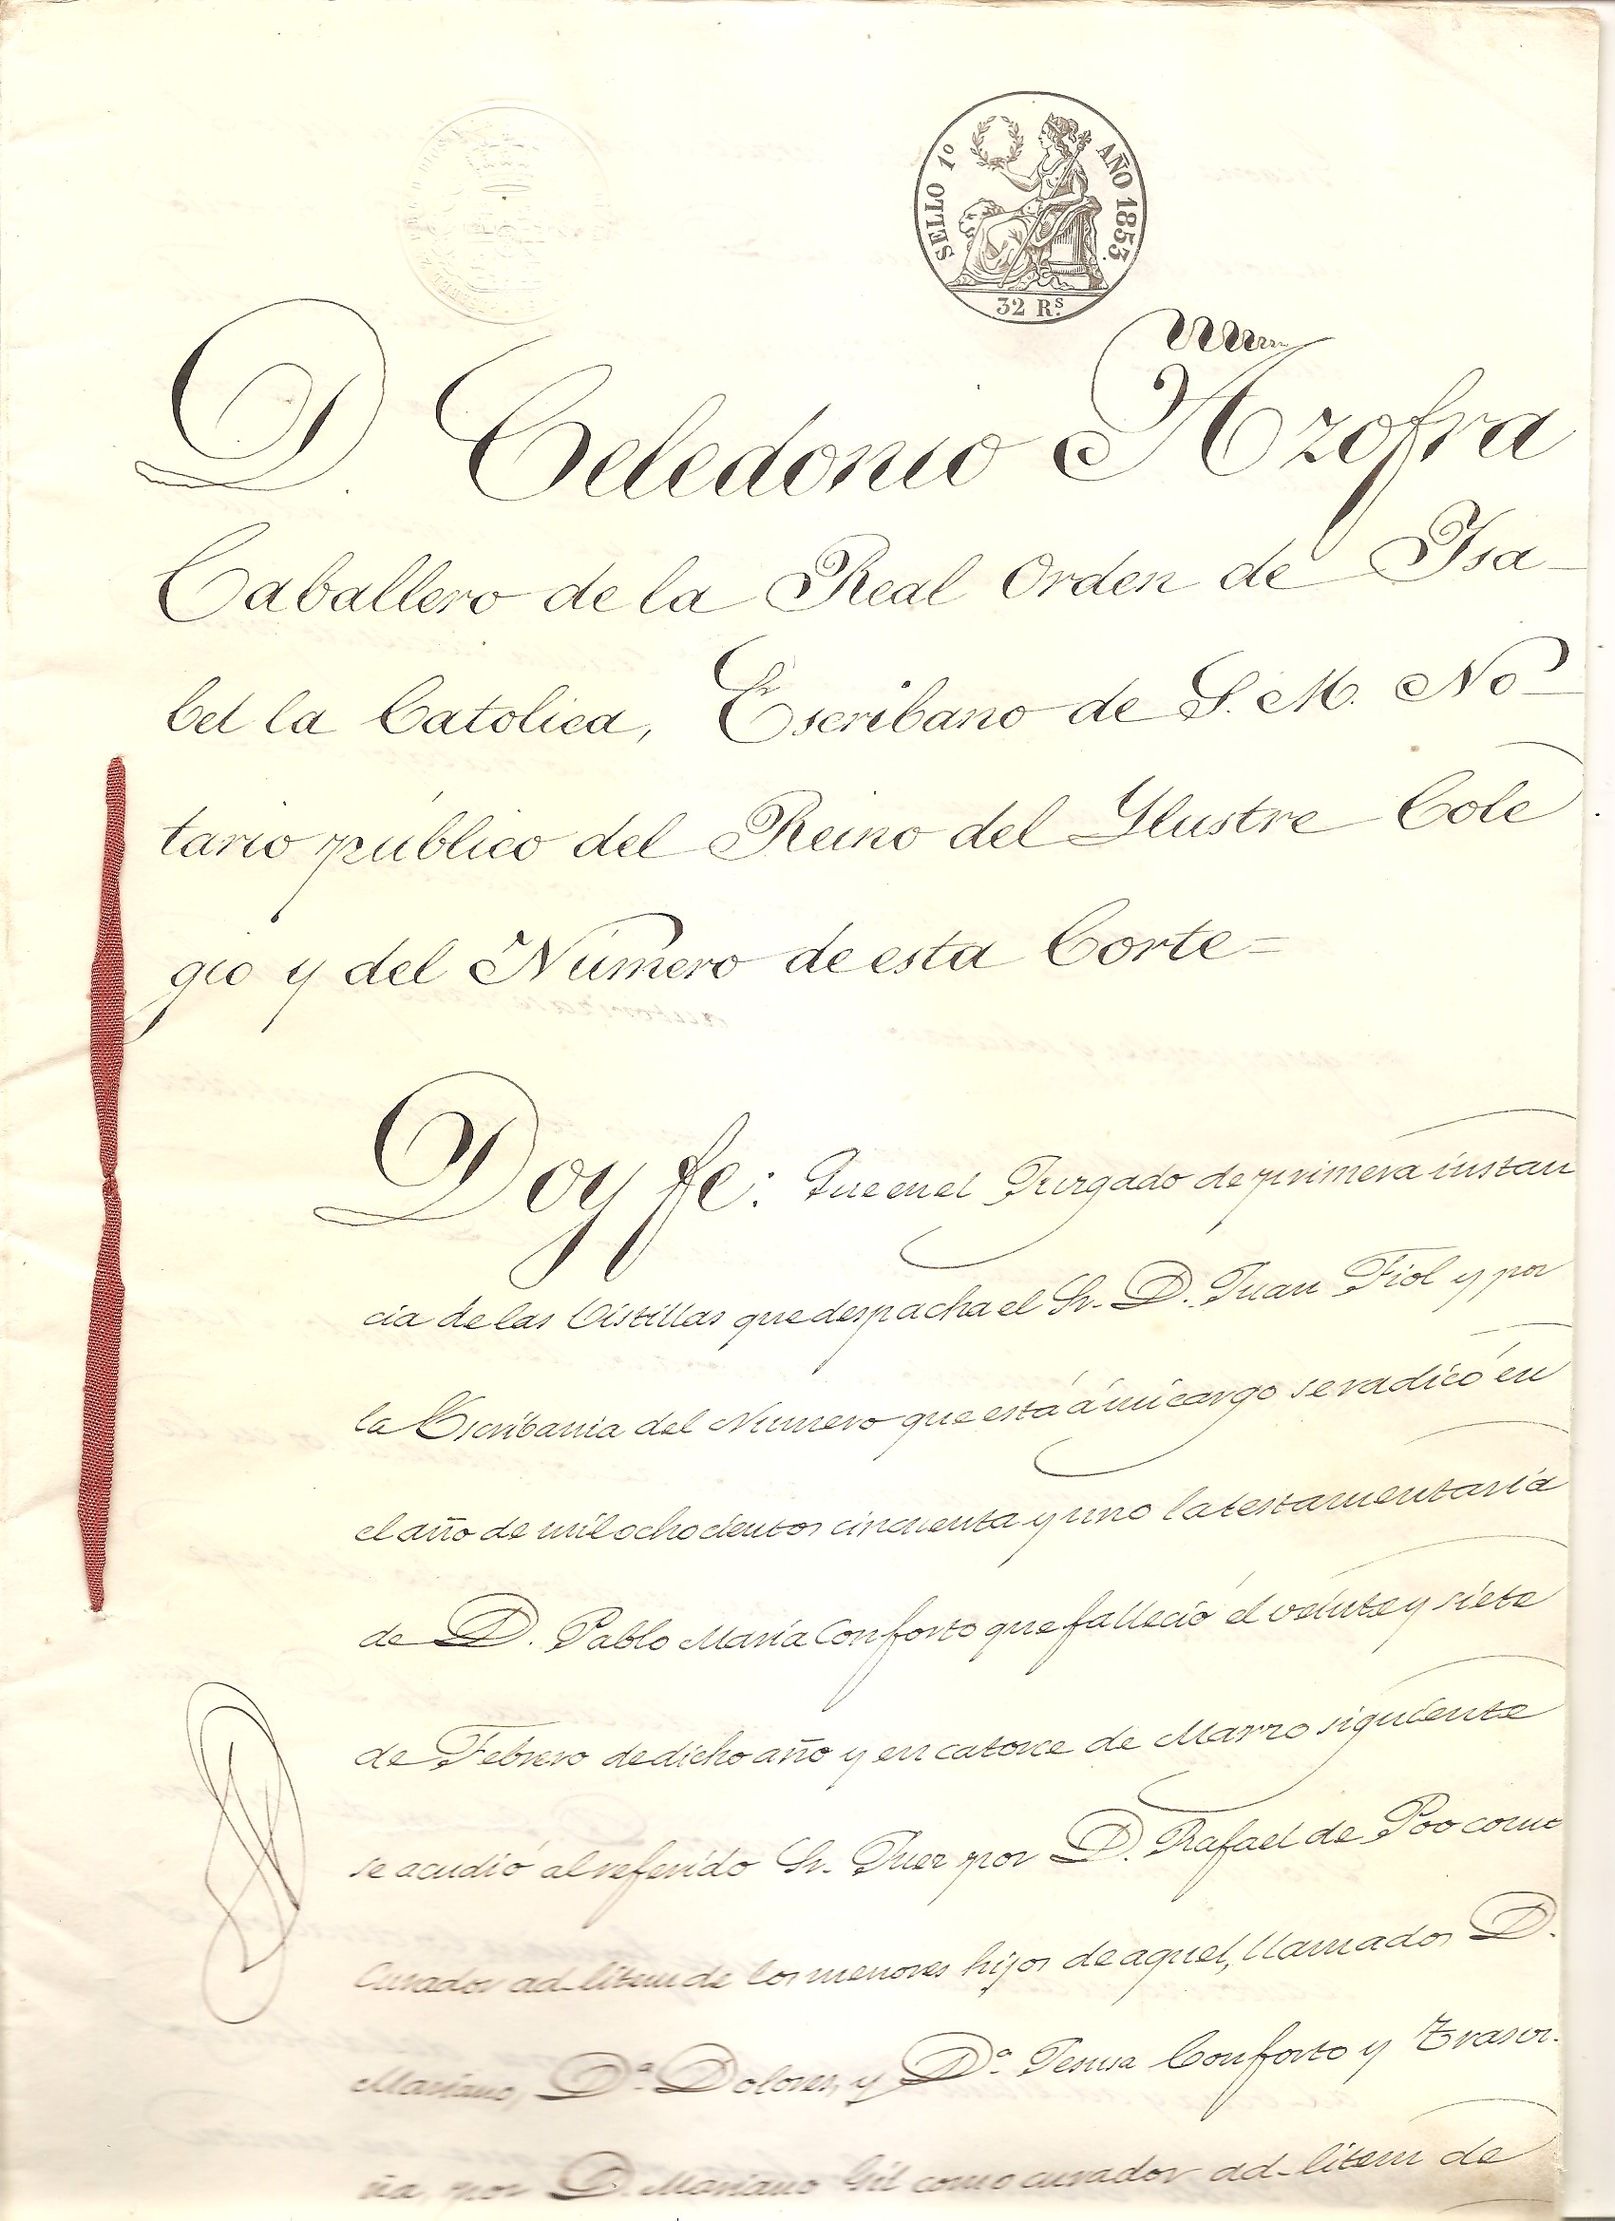 SELLO 1º AÑO 1853.
32 Rs.
D. Celedonio Azofra
Caballero de la Real Orden de Isa-
bel la Catolica, Escribano de S. M. No-
tario público del Reino del Ylustre Cole
gio y del Número de esta Corte=
Doy fe: Que en el Juzgado de primera instan
cia de las Vistillas que despacha el Sr. D. Juan Fiol y por
la Escribania del Numero que está á mi cargo se radicó en
el año de mil ochocientos cincuenta y uno la testamentaría
de D. Pablo María Conforto que falleció el veinte y siete
de Febrero de dicho año y en catorce de Marzo siguiente
se acudió al referido Sr. Juez por D. Rafael de Poo como
Curador ad-litem de los menores hijos de aquel, llamados D.
Mariano, Dª. Dolores, y Dª. Jesusa Conforto y Trasvi-
ña, por D. Mariano Gil como curador ad-litem de